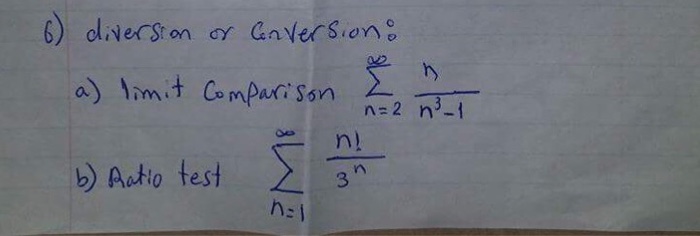 6) diversion or Conversion:
a) limit Comparison ∞ Σ n=2 n / n³-1
b) Ratio test ∞ Σ n=1 n! / 3ⁿ